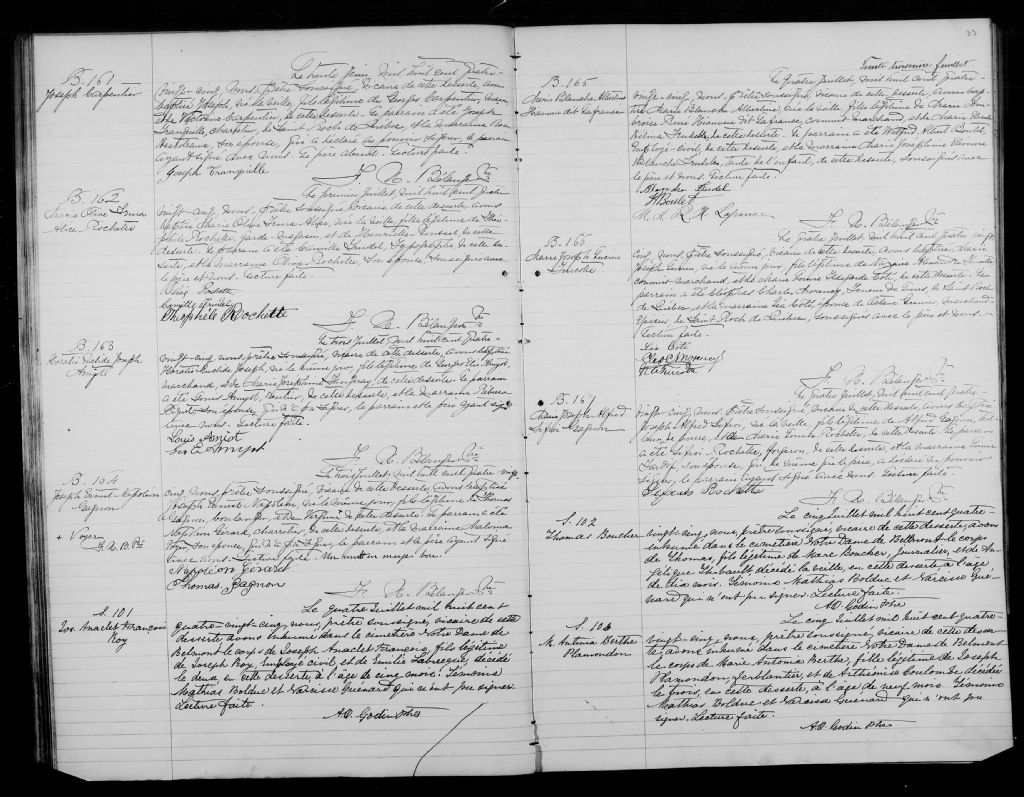 B. 161
Joseph Carpentier
Le trente Juin mil huit cent quatre-
vingt-cinq, nous, prêtre soussigné, vicaire de cette desserte, avons
baptisé Joseph, né la veille, fils légitime de Georges Carpentier,
et de de cette desserte. Le parrain a été Joseph
Tranquille, charretier, de Saint Roch de Québec, et la marraine
son épouse, qui a déclaré ne pouvoir signer, le parrain
ayant signé avec nous. Le père absent. Lecture faite.
Joseph Tranquille
F. X. Bélanger Ptre
B. 162
Marie Olive Emma
Alice Rochette
Le premier Juillet mil huit cent quatre
vingt-cinq, nous, prêtre soussigné, vicaire de cette desserte avons
baptisé Marie Olive Emma Alice, née la veille, fille légitime de Théo-
phile Rochette, garde magasin, et de de cette
desserte. Le parrain a été Camille Trudel, typographe de cette des-
serte, et la marraine Olive Rochette, son épouse, soussignés avec
le père et nous. Lecture faite.
Olive Rochette
Camille Trudel
Théophile Rochette
F. X. Bélanger Ptre
B. 163
Horatio Euclide Joseph
Amyot
Le trois Juillet mil huit cent quatre
vingt-cinq, nous prêtre soussigné, vicaire de cette desserte, avons baptisé
Horatio Euclide Joseph, né le même jour, fils légitime de Georges Elie Amyot,
marchand, et de Marie Joséphine Tanguay, de cette desserte. Le parrain
a été Louis Amyot, de cette desserte, et la marraine
son épouse, qui n'a su signer, le parrain et le père ayant signé
avec nous. Lecture faite.
Louis Amiot
Geo E Amyot
F. X. Bélanger Ptre
B. 164
Joseph Ernest Napoléon
Gagnon
+ Voyer
F. X. B. Ptre
Le trois Juillet mil huit cent quatre-vingt-
cinq nous prêtre soussigné, vicaire de cette desserte, avons baptisé
Joseph Ernest Napoléon, né le même jour, fils légitime de Thomas
Gagnon, boulanger, et de de cette desserte. Le parrain a été
Napoléon Gérard, charretier, de cette desserte, et la marraine
Voyer son épouse, qui n'a su signer, le parrain et le père ayant signé
avec nous. Lecture faite. Un mot en marge bon.
Napoléon Gérard
Thomas Gagnon
F. X. Bélanger Ptre
S. 101
Jos. Anaclet François
Roy
Le quatre Juillet mil huit cent
quatre-vingt-cinq, nous, prêtre soussigné, vicaire de cette
desserte avons inhumé dans le cimetière Notre Dame de
Belmont le corps de Joseph Anaclet François, fils légitime
de Joseph Roy, employé civil, et de Emélie Labrecque, décédé
le deux, en cette desserte, à l'âge de cinq mois. Témoins
Mathias Bolduc et Narcisse Guénard qui n'ont pu signer.
Lecture faite.
A.O. Godin Ptre
33
Trente troisième feuillet
B. 165
Marie Blanche Albertine
Réaume dit Lafrance
Le quatre Juillet mil huit cent quatre-
vingt-cinq, nous, prêtre soussigné, vicaire de cette desserte, avons bap-
tisé Marie Blanche Albertine, née la veille, fille légitime de Marie Am-
broise René Réaume dit Lafrance, commis marchand, et de Marie
Trudel, de cette desserte. Le parrain a été Wilfrid Albert Boulet,
employé civil, de cette desserte, et la marraine Marie Joséphine
Blanche Trudel, tante de l'enfant, de cette desserte, soussignés avec
le père et nous. Lecture faite.
Blanche Trudel
Boulet
M. A. R. R. Lafrance
F. X. Bélanger Ptre
B. 166
Marie Joseph Lucien
Turcotte
Le quatre Juillet mil huit cent quatre vingt-
cinq, nous, prêtre soussigné, vicaire de cette desserte, avons baptisé Marie
Joseph Lucien, né le même jour, fils légitime de Nazaire Turcotte
commis marchand, et de Marie Louise Côté, de cette desserte. Le
parrain a été Charles Morency, teneur de livres, de Saint Roch
de Québec, et la marraine Léa Côté, épouse de marchand
épicier de Saint Roch de Québec, soussignés avec le père et nous.
Lecture faite.
Léa Côté
Morency
Turcotte
F. X. Bélanger Ptre
B. 167
Marie Joseph Alfred
Gagnon
Le quatre Juillet mil huit cent quatre-
vingt-cinq, nous, prêtre soussigné, vicaire de cette desserte, avons baptisé
Joseph Alfred né la veille, fils légitime de Alfred Gagnon,
de pierre, et de Marie Rochette, de cette desserte. Le parrain
a été Rochette, forgeron, de cette desserte, et la marraine
Tardif, son épouse, qui, de même que le père, a déclaré ne pouvoir
signer, le parrain ayant signé avec nous. Lecture faite.
Rochette
F. X. Bélanger Ptre
S. 102
Thomas Boucher
Le cinq Juillet mil huit cent quatre-
vingt-cinq, nous, prêtre soussigné, vicaire de cette desserte, avons
inhumé dans le cimetière Notre Dame de Belmont le corps
de Thomas, fils légitime de Marc Boucher, journalier, et de An-
gélique Thibault, décédé la veille, en cette desserte à l'âge
de dix mois. Témoins Mathias Bolduc et Narcisse Gué-
nard qui n'ont pu signer. Lecture faite.
A.O. Godin Ptre
S. 103
M. Antonia Berthe
Plamondon
Le cinq Juillet mil huit cent quatre-
vingt-cinq, nous, prêtre soussigné, vicaire de cette desser-
te, avons inhumé dans le cimetière Notre Dame de Belmont
le corps de Marie Antonia Berthe, fille légitime de Joseph
Plamondon, ferblantier, et de Arthémise Coulombe, décédée
le trois, en cette desserte, à l'âge de neuf mois. Témoins
Mathias Bolduc et Narcisse Guénard qui n'ont pu
signer. Lecture faite.
A.O. Godin Ptre